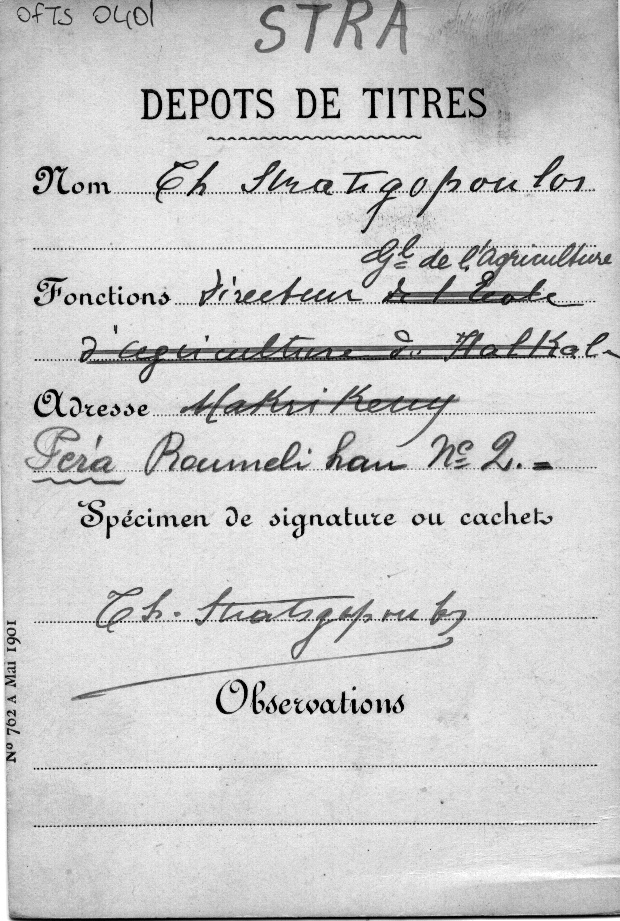 OFTS 0401
STRA
DEPOTS DE TITRES
Nom Th Stratigopoulos
Gl de l'Agriculture
Fonctions Directeur de l'Ecole
d'agriculture de Halkal
Adresse Makrikeuy
Pera Roumeli han No 2. =
Spécimen de signature ou cachet
Th. Stratigopoulos
Observations
No 762 A Mai 1901